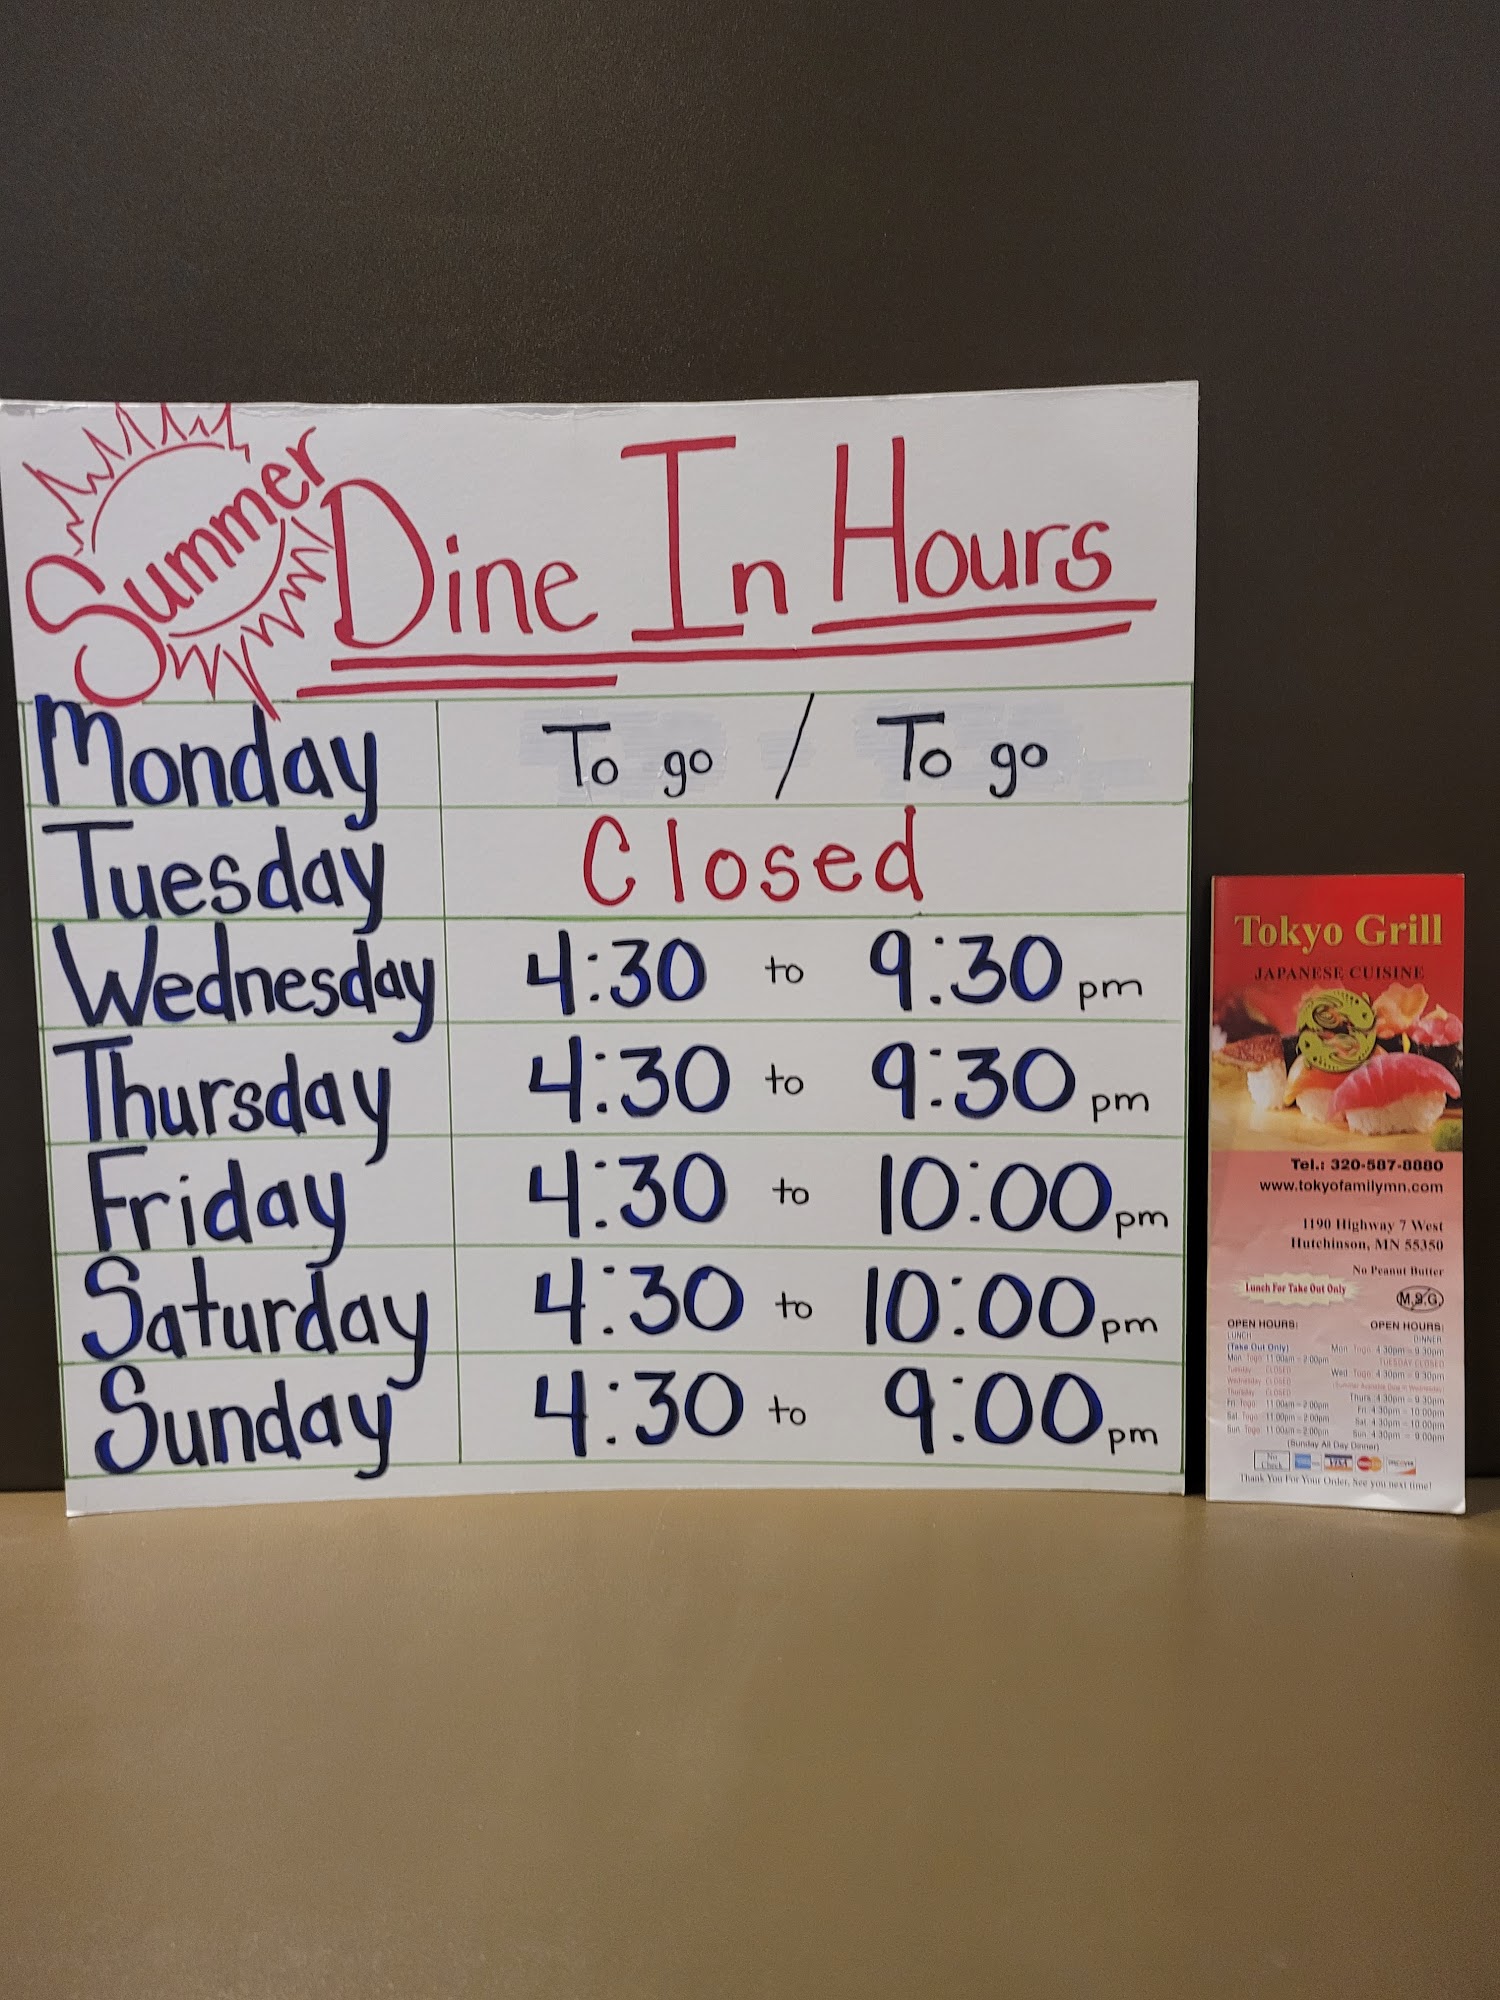 Summer
Dine In Hours
Monday To go / To go
Tuesday Closed
Wednesday 4:30 to 9:30 pm
Thursday 4:30 to 9:30 pm
Friday 4:30 to 10:00 pm
Saturday 4:30 to 10:00 pm
Sunday 4:30 to 9:00 pm
Tokyo Grill
JAPANESE CUISINE
Tel.: 320-587-8880
www.tokyofamilymn.com
1190 Highway 7 West
Hutchinson, MN 55350
No Peanut Butter
Lunch For Take Out Only
M.S.G.
OPEN HOURS:
LUNCH
(Take Out Only)
Mon. Togo: 11:00am - 2:00pm
Tuesday CLOSED
Wednesday CLOSED
Thursday CLOSED
Fri. Togo: 11:00am - 2:00pm
Sat. Togo: 11:00pm - 2:00pm
Sun. Togo: 11:00am - 2:00pm
OPEN HOURS:
DINNER
Mon. Togo: 4:30pm - 9:30pm
TUESDAY CLOSED
Wed. Togo: 4:30pm - 9:30pm
Thurs. 4:30pm - 9:30pm
Fri. 4:30pm - 10:00pm
Sat. 4:30pm - 10:00pm
Sun. 4:30pm - 9:00pm
(Sunday All Day Dinner)
No Check
VISA
DISCOVER
Thank You For Your Order, See you next time!